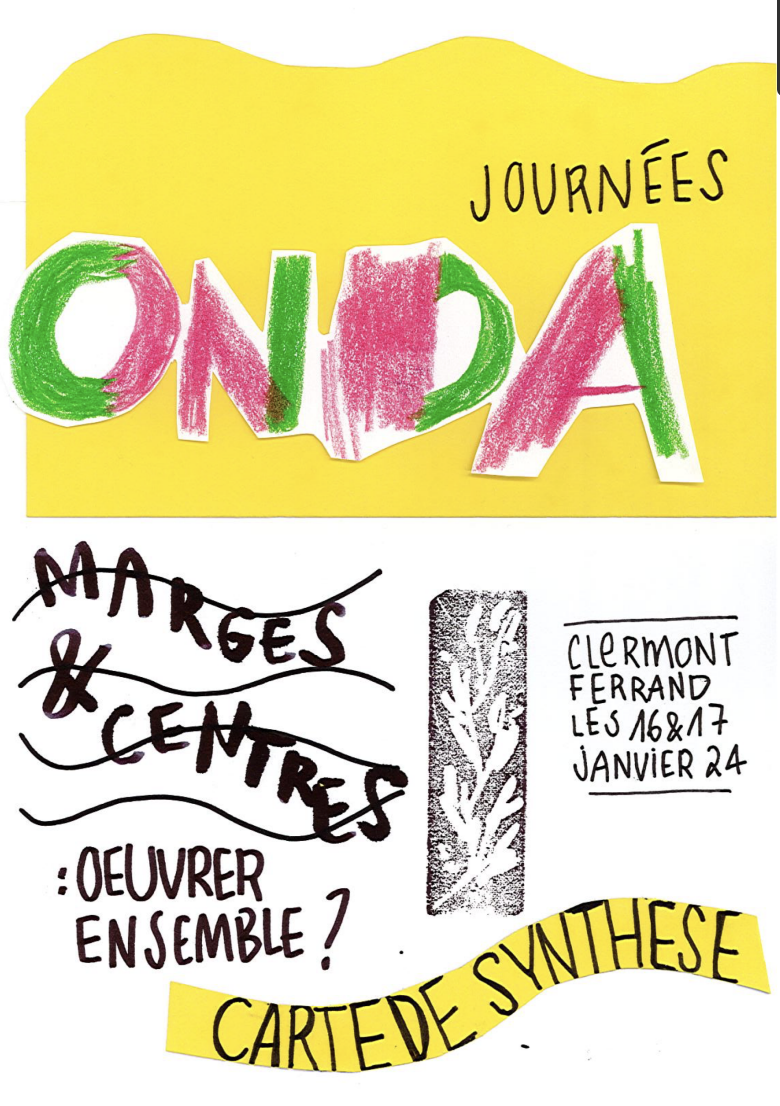 JOURNÉES
ONDA
MARGES
&
CENTRES
: OEUVRER
ENSEMBLE ?
CLERMONT
FERRAND
LES 16 & 17
JANVIER 24
CARTE DE SYNTHESE